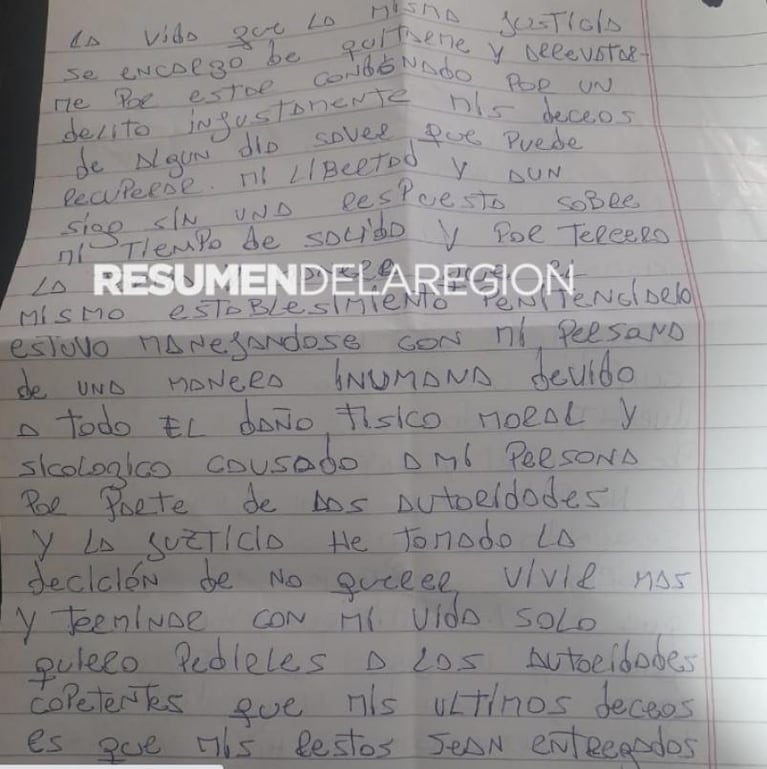 LA VIDA que LA MISMA JUSTICIA
se encargo de quitarme y
me Por estar condenado Por un
delito ingustamente mis deceos
de algun dia saver que Puede
recuperar mi LiBertad y aun
sigo sin una resPuesta soBre
mi TIEMPO de SALIDA y POR Tercero
LA
RESUMENDELAREGION
mismo estoblesimiento Penitenciario
estuvo manegandose con mi Persana
de una manera inumana devido
a todo EL daño fisico moral y
sicologico causado a mi Persona
Por Parte de Las autoridades
y La juzticia He Tomado La
decición de no querer vivir mas
y Terminar con mi vida solo
quiero Pedirles a Los autoridades
copetentes que mis ultimos deceos
es que mis restos sean entregados